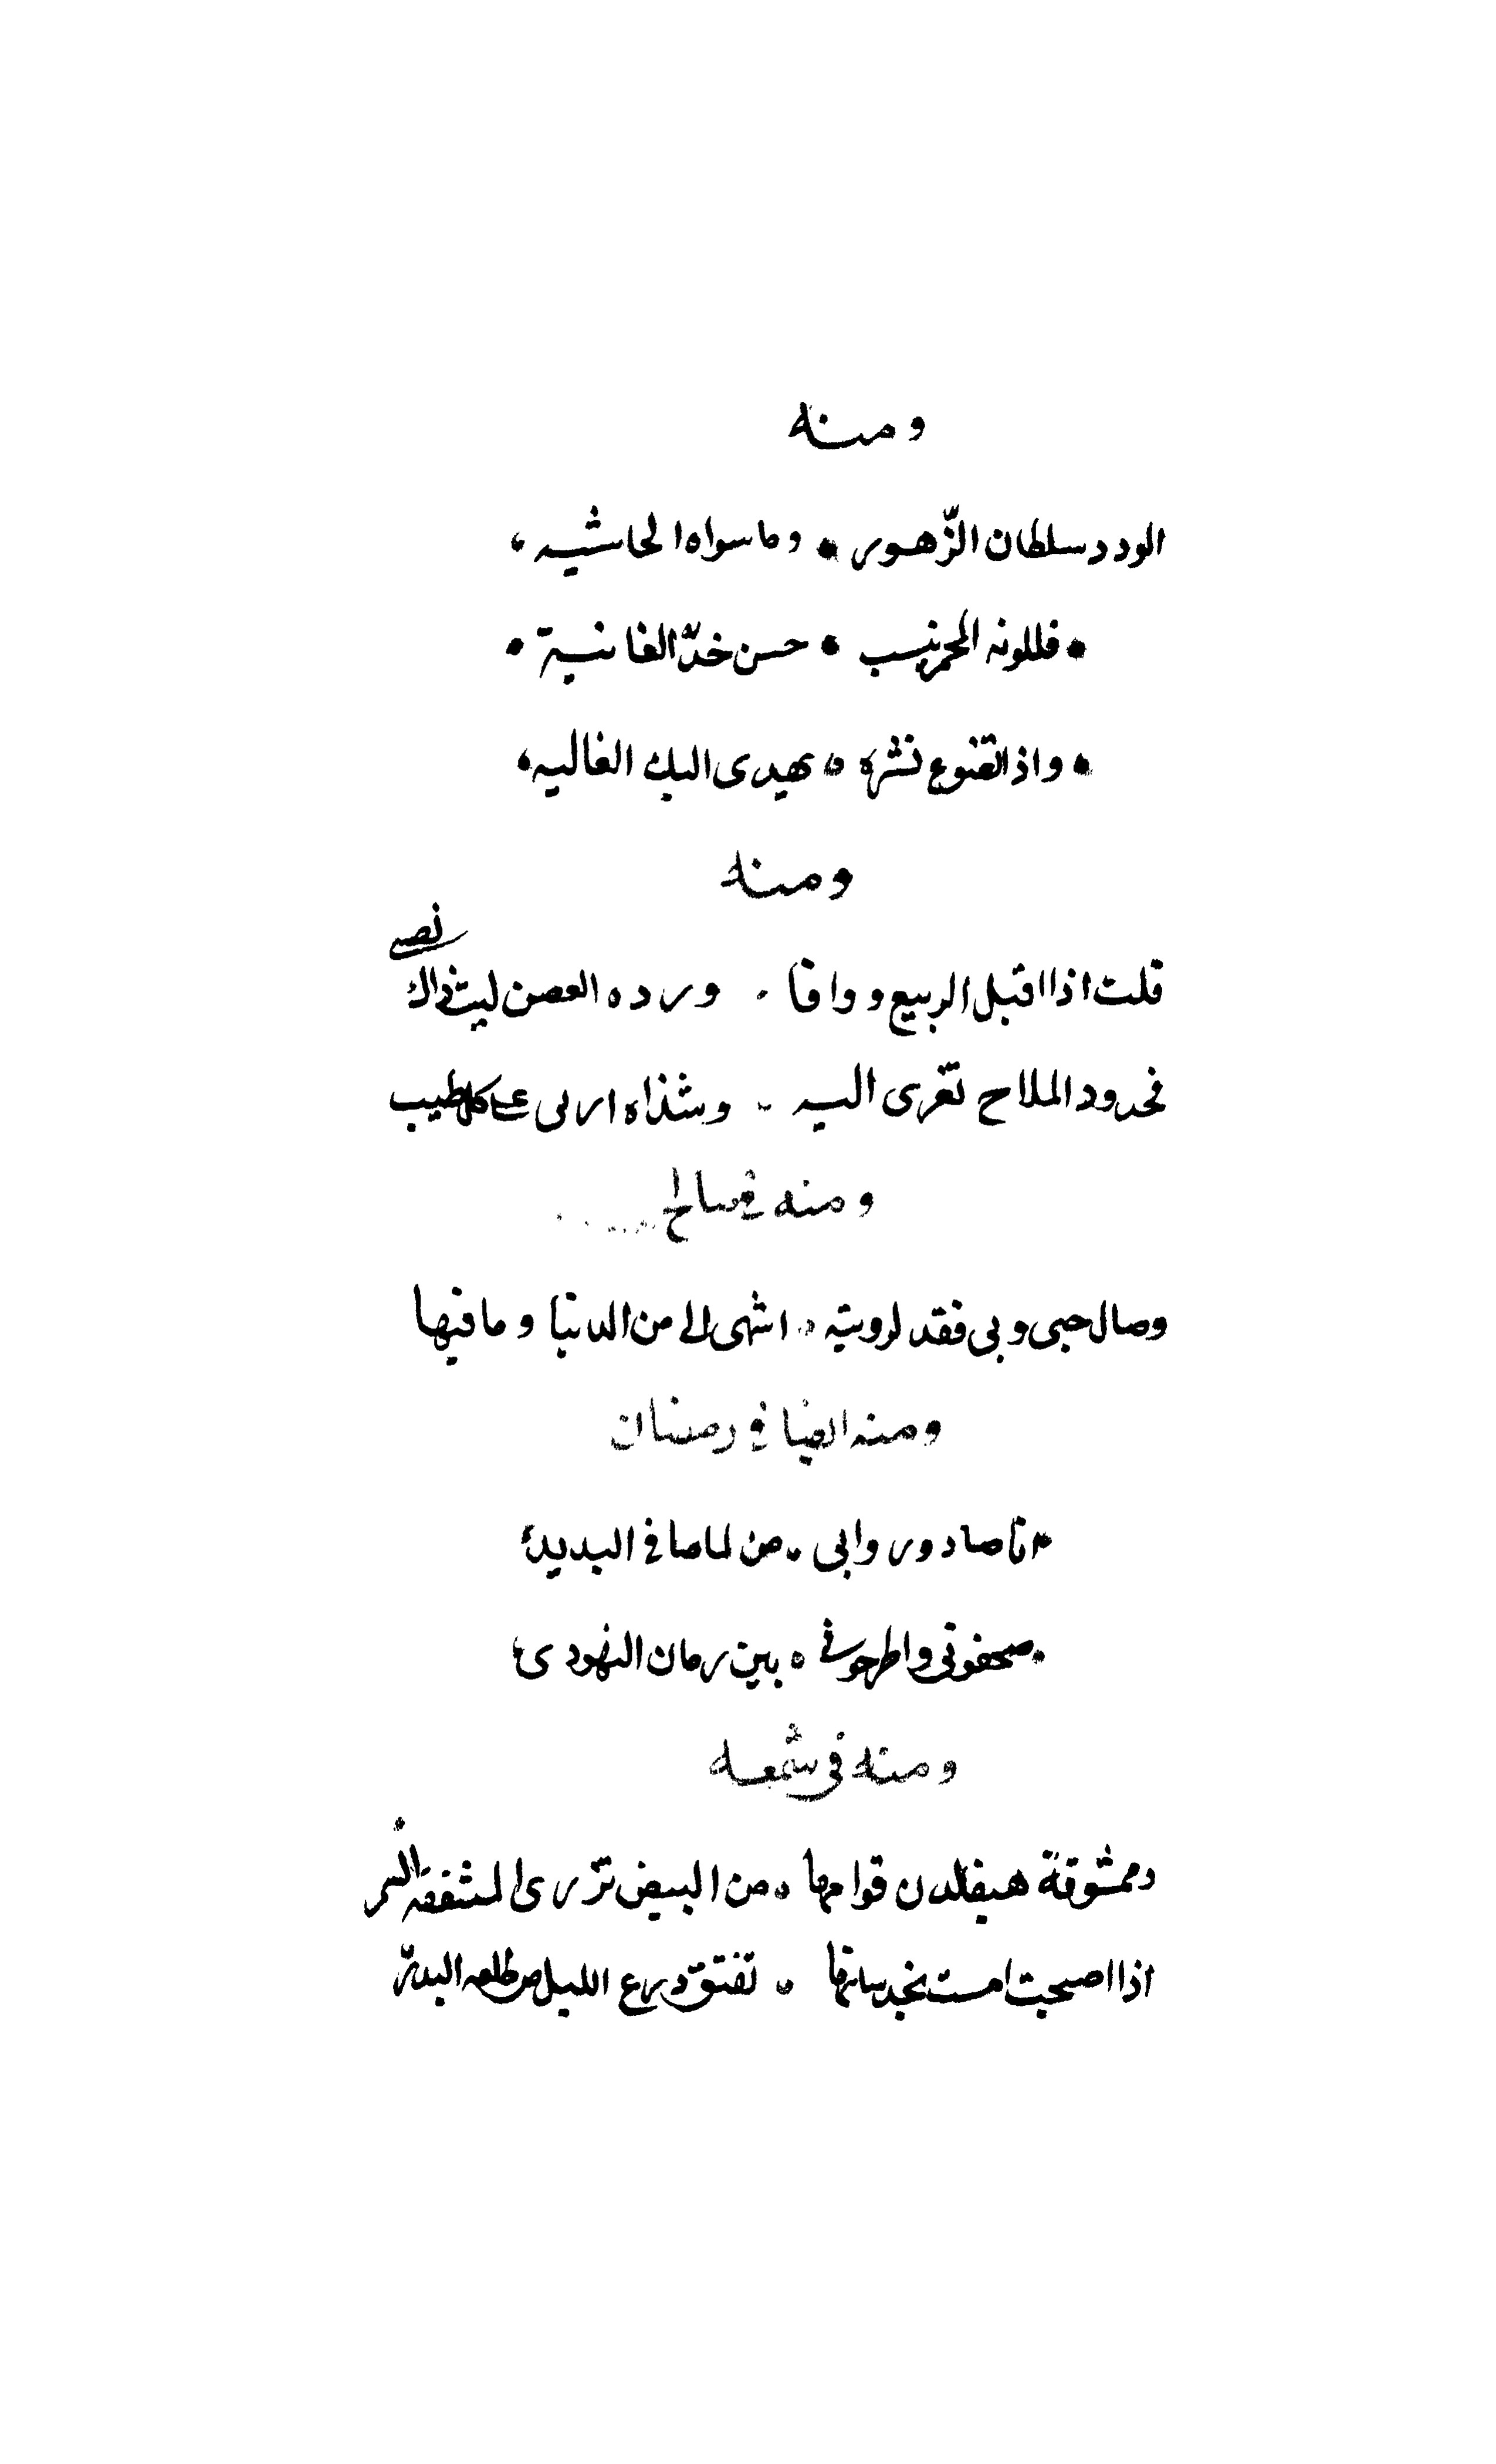 ومنه
الورد سلطان الزّهور • وما سواه الحاشيه
• فللونه المحمر ينسب • حسن خدّ الغانية •
• واذا تضوع نشره • يهدى اليك الغاليه
ومنه
قلت اذا اقبل الربيع ووافا . ورده الغصن ليت ذاك نصيبى
فخدود الملاح تعزى اليه . وشذاه اربى على كل طيب
ومنه فى
وصال حبى وبى فقد لرويته . اشهى الى من الدنيا وما فيها
ومنه ايضا فى رمضان
انا صاد وروابى . من لماصافى البديد
صحفونى واطرحونى . بين رمان النهودى
ومنه فى شمعه
وممشوقة هيفا لدن قوامها . من البيض تزرى المشقفه السمر
اذا اصبحت امست تفتق درع الليل من طلعه البدر